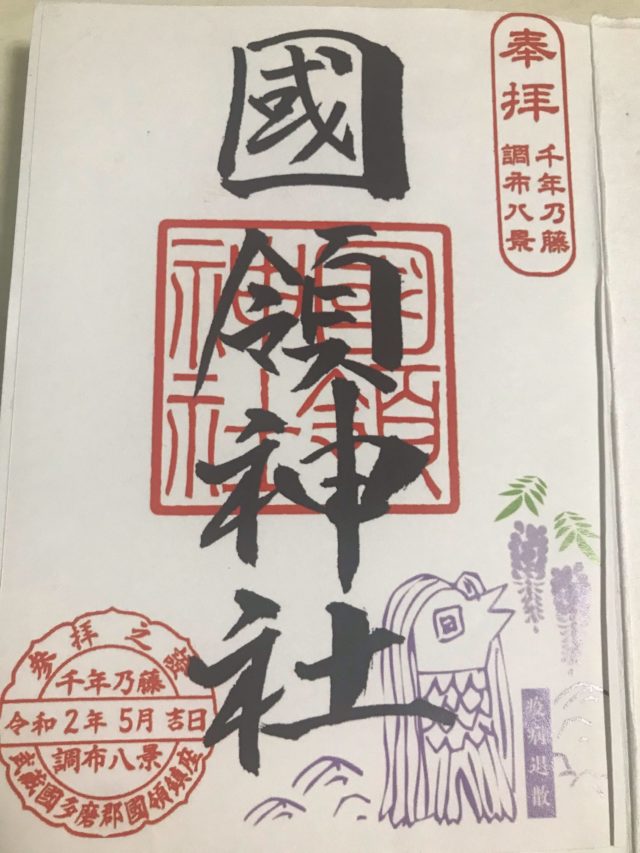 奉拝
千年乃藤
調布八景
國領神社
國領
神社
参拝之證
千年乃藤
令和2年5月吉日
調布八景
武蔵國多磨郡國領鎮座
疫病退散